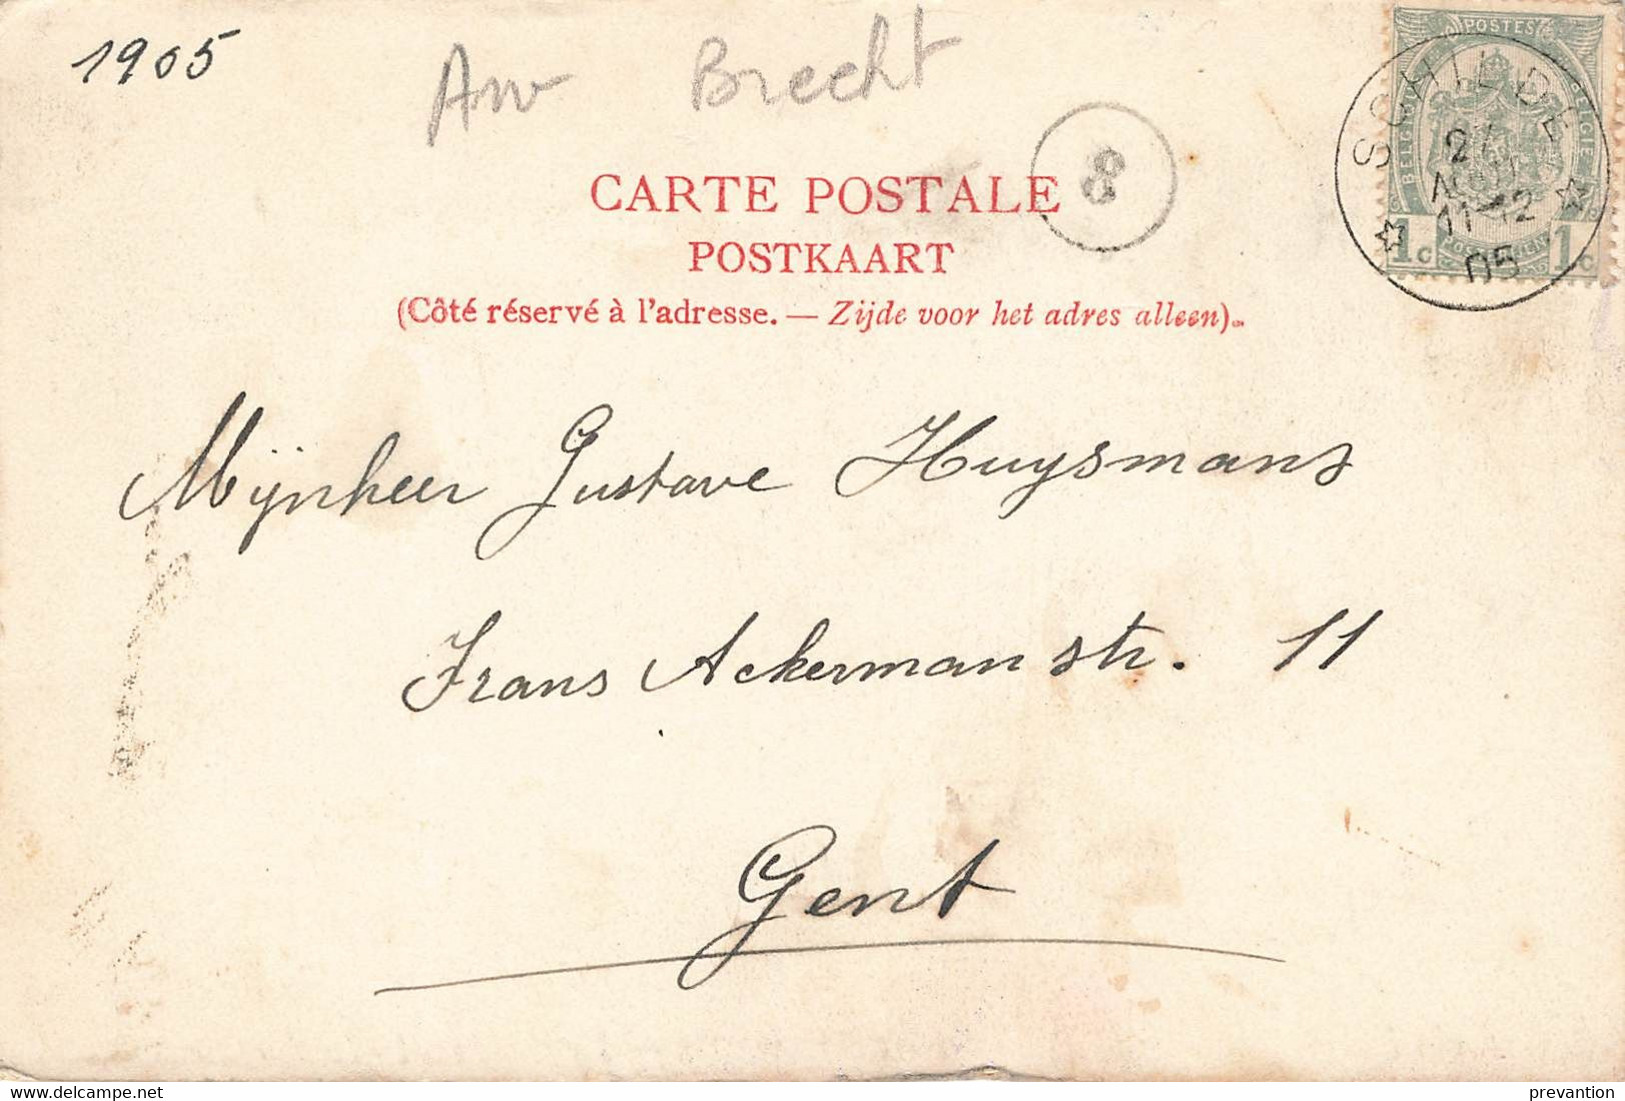 1905
Anv Brecht
POSTES
BELGIQUE BELGIË
1c 1c
SCHILDE
27
AOUT
11-12
05
8
CARTE POSTALE
POSTKAART
(Côté réservé à l'adresse. — Zijde voor het adres alleen).
Mijnheer Gustave Huysmans
Frans Ackermanstr. 11
Gent
delcampe.net
prevantion